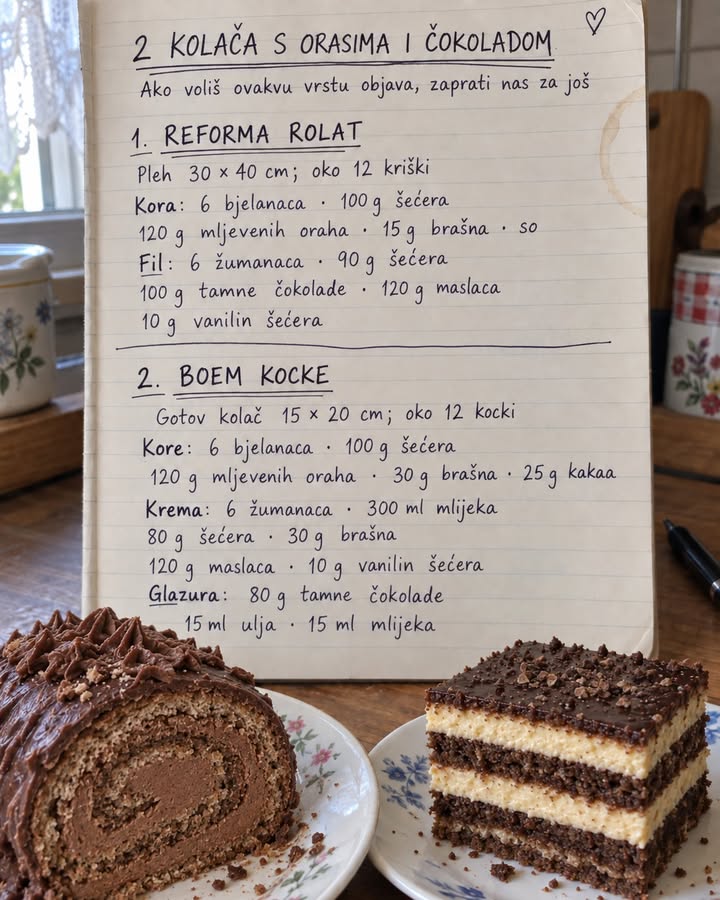 2 KOLAČA S ORASIMA I ČOKOLADOM
Ako voliš ovakvu vrstu objava, zaprati nas za još
1. REFORMA ROLAT
Pleh 30 × 40 cm; oko 12 kriški
Kora: 6 bjelanaca · 100 g šećera
120 g mljevenih oraha · 15 g brašna · so
Fil: 6 žumanaca · 90 g šećera
100 g tamne čokolade · 120 g maslaca
10 g vanilin šećera
2. BOEM KOCKE
Gotov kolač 15 × 20 cm; oko 12 kocki
Kore: 6 bjelanaca · 100 g šećera
120 g mljevenih oraha · 30 g brašna · 25 g kakaa
Krema: 6 žumanaca · 300 ml mlijeka
80 g šećera · 30 g brašna
120 g maslaca · 10 g vanilin šećera
Glazura: 80 g tamne čokolade
15 ml ulja · 15 ml mlijeka